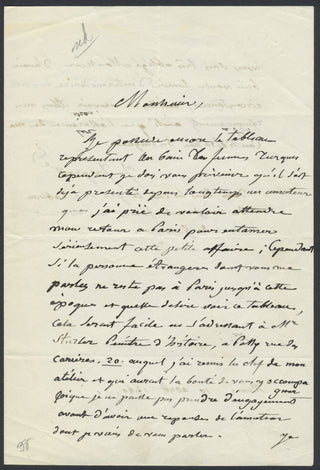 Monsieur,
Je possède encore le tableau
représentant un bain de femmes Turques
cependant je dois vous prévenir qu'il s'est
déjà présenté depuis longtemps un amateur
que j'ai prié de vouloir attendre
mon retour à Paris pour entamer
sérieusement cette petite affaire ; Cependant
Si la personne étrangère dont vous me
parlez ne reste pas à Paris jusqu'à cette
époque et qu'elle désire voir ce tableau,
cela serait facile en s'adressant à Mr
Sturler Peintre d'histoire, à Passy rue des
Carrières, 20. auquel j'ai remis la clef de mon
atelier et qui aurait la bonté de vous y accompa
gner
quoique je ne puisse pas prendre d'engagement
avant d'avoir une réponse de l'amateur
dont je viens de vous parler.
Je